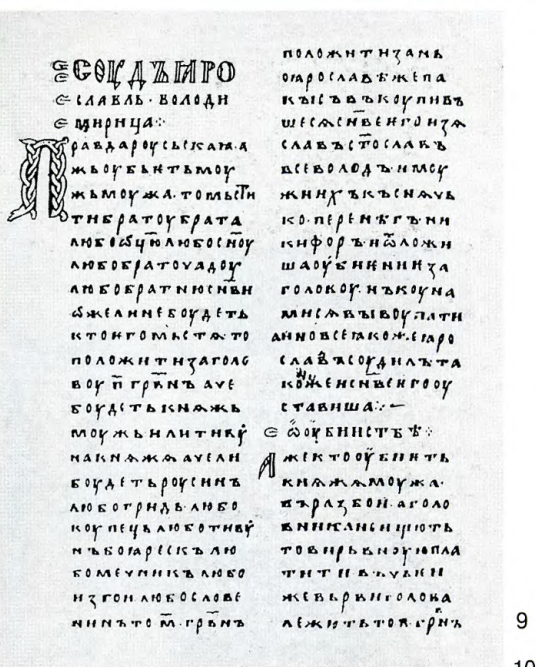 СОУДЪ ІАРО
СЛАВЛЬ · ВОЛОДИ
МИРИЦА·:·
ПРАВДА РОУСЬСКАІА · А
ЖЬ ОУБЬИТЬ МОУ
ЖЬ МОУЖА · ТО МЬСТИ
ТИ БРАТОУ БРАТА
ЛЮБО ѾЦЮ ЛЮБО СНОУ
ЛЮБО БРАТОУАДОУ
ЛЮБО БРАТНЮ СНВИ
ѠЖЕ ЛИ НЕ БОУДЕТЬ
КТО ІЕГО МЬСТѦ ТО
ПОЛОЖИТИ ЗА ГОЛО
ВОУ П҃ ГРВНЪ АЧЕ
БОУДЕТЬ КНѦЖЬ
МОУЖЬ ИЛИ ТИВОУ
НА КНѦЖѦ АЧЕ ЛИ
БОУДЕТЬ РОУСИНЪ
ЛЮБО ГРИДЬ · ЛЮБО
КОУПЕЦЬ ЛЮБО ТИВОУ
НЪ БОІАРЕСКЪ ЛЮ
БО МЕЧНИКЪ ЛЮБО
ИЗГОИ ЛЮБО СЛОВЕ
НИНЪ ТО М҃ · ГРВНЪ
ПОЛОЖИТИ ЗА НЬ
ПО ІАРОСЛАВѢ ЖЕ ПА
КЫ СЪВЪКОУПИВЪ
ШЕСѦ СНВЕ ІЕГО ИЗѦ
СЛАВЪ СТОСЛАВЪ
ВСЕВОЛОДЪ · И МОУ
ЖИ ИХЪ КЪСНѦЧЬ
КО · ПЕРЕНѢГЪ НИ
КИФОРЪ · И ѾЛОЖИ
ША ОУБИЕНИІЕ ЗА
ГОЛОВОУ · НЪ КОУНА
МИ СѦ ВЫВОУПАТИ
А ИНО ВСЕ ІАКО ЖЕ ІАРО
СЛАВЪ СОУДИЛЪ ТА
КО ЖЕ И СНВЕ ІЕГО ОУ
СТАВИША·:·
Ѡ ОУБИИСТВѢ·:·
АЖЕ КТО ОУБИІЕТЬ
КНѦЖѦ МОУЖА ·
ВЪ РАЗБОИ · А ГОЛО
ВНИКА НЕ ИЩЮТЬ
ТО ВИРЬВНОУЮ ПЛА
ТИТИ ВЪ ЧЬІЕИ
ЖЕ ВЬРВИ ГОЛОВА
ЛЕЖИТЬ ТО П҃ · ГРВНЪ
9
10